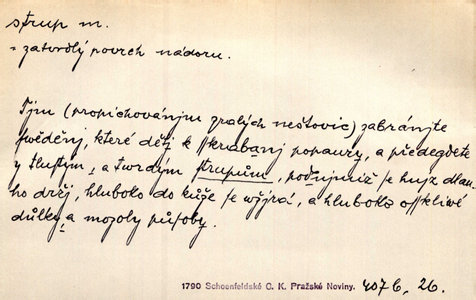 strup m.
= zatvrdlý povrch nádoru.
Tjm (propichovánjm zralých neštovic) zabránjte
swěděnj, které dětj k sskrabanj ponauzý, a předegdete
y tlustým, a twrdým strupům, pod njmiž se hngz dlau-
ho držj, hluboko do kůže se wžjrá, a hluboké ossklivé
důlky a mozoly působý.
1790 Schoenfeldské C. K. Pražské Noviny. 407 b, 26.